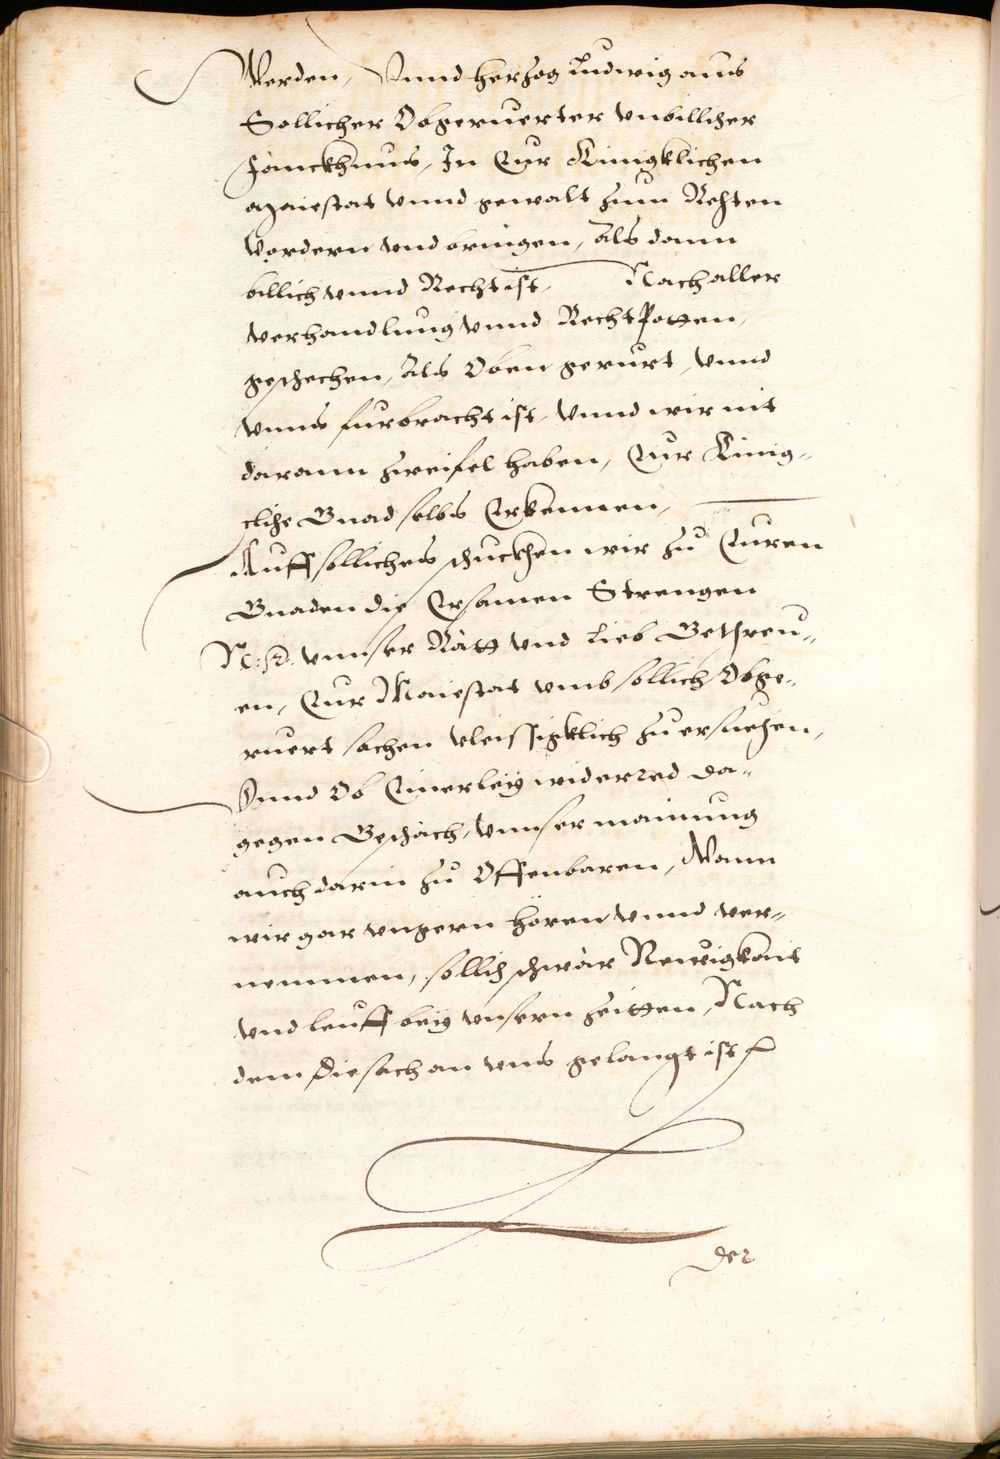 Werden, Vnnd herzog Ludwig auns
Sollicher Obgeruerter vnbillicher
fännckhnus, In Eur Künigklichen
Maiestat vnnd gewalt zum Rechten
Vordern vnd bringen, Als dann
billich vnnd Recht ist, Nach aller
verhandlung vnnd Recht Potten
geschechen, Als Oben gerurt, vnnd
vnns furbracht ist, Vnnd wir nit
darann zweifel haben, Eur Künig-
cliche Gnad selbs Erkennen,
Auff solliches schuckhen wir zu Euren
Gnaden die Ersamen Strengen
N: N: vnnser Rätt vnd Lieb Gethreu-
en, Eur Maiestat vmb sollich Obge-
ruert sachen vleissigklich zu ersuchen,
Vnnd Ob Einerleÿ widerred da-
gegen Geschäch, vnnser mainung
auch darin zu Offenbaren, Wann
wir gar vngern hören vnnd ver-
nemmen, sollich schwär Newigkait
vnd leuff beÿ vnsern zeitten, Nach
dem die sach an vnns gelangt ist
der